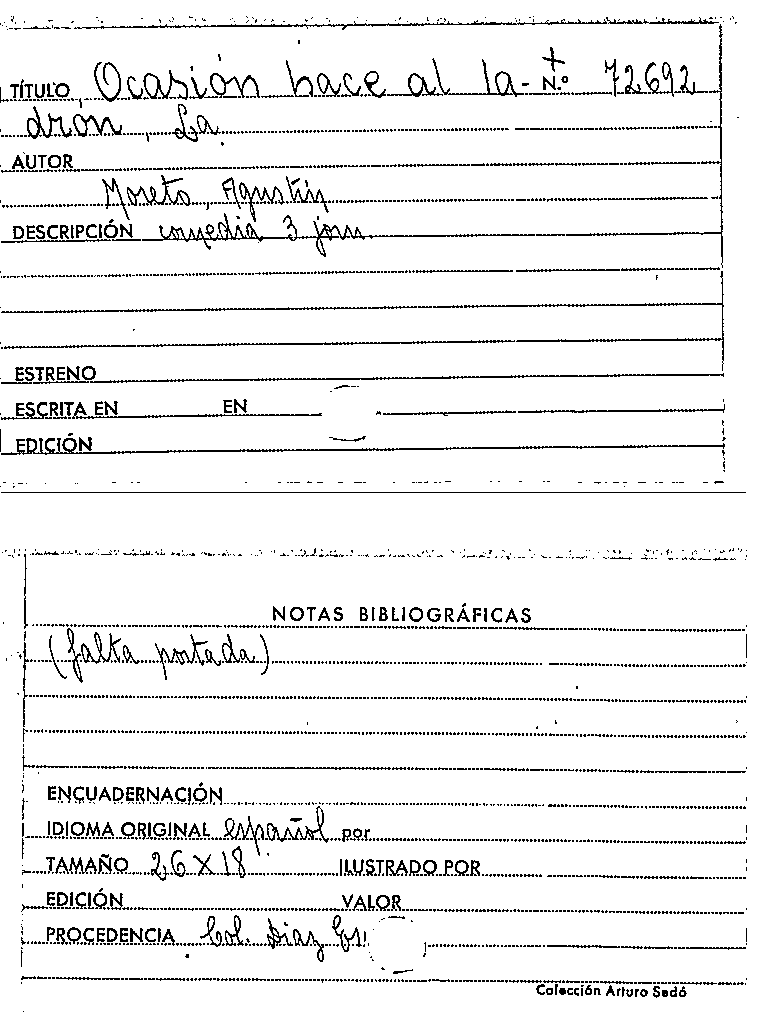 TÍTULO Ocasión hace al la- N.º 72692
drón, La
AUTOR
Moreto, Agustín
DESCRIPCIÓN comedia 3 jorn.
ESTRENO
ESCRITA EN EN
EDICIÓN
NOTAS BIBLIOGRÁFICAS
(falta portada)
ENCUADERNACIÓN
IDIOMA ORIGINAL español por
TAMAÑO 26 X 18 ILUSTRADO POR
EDICIÓN VALOR
PROCEDENCIA Col. Díaz Es
Colección Arturo Sedó